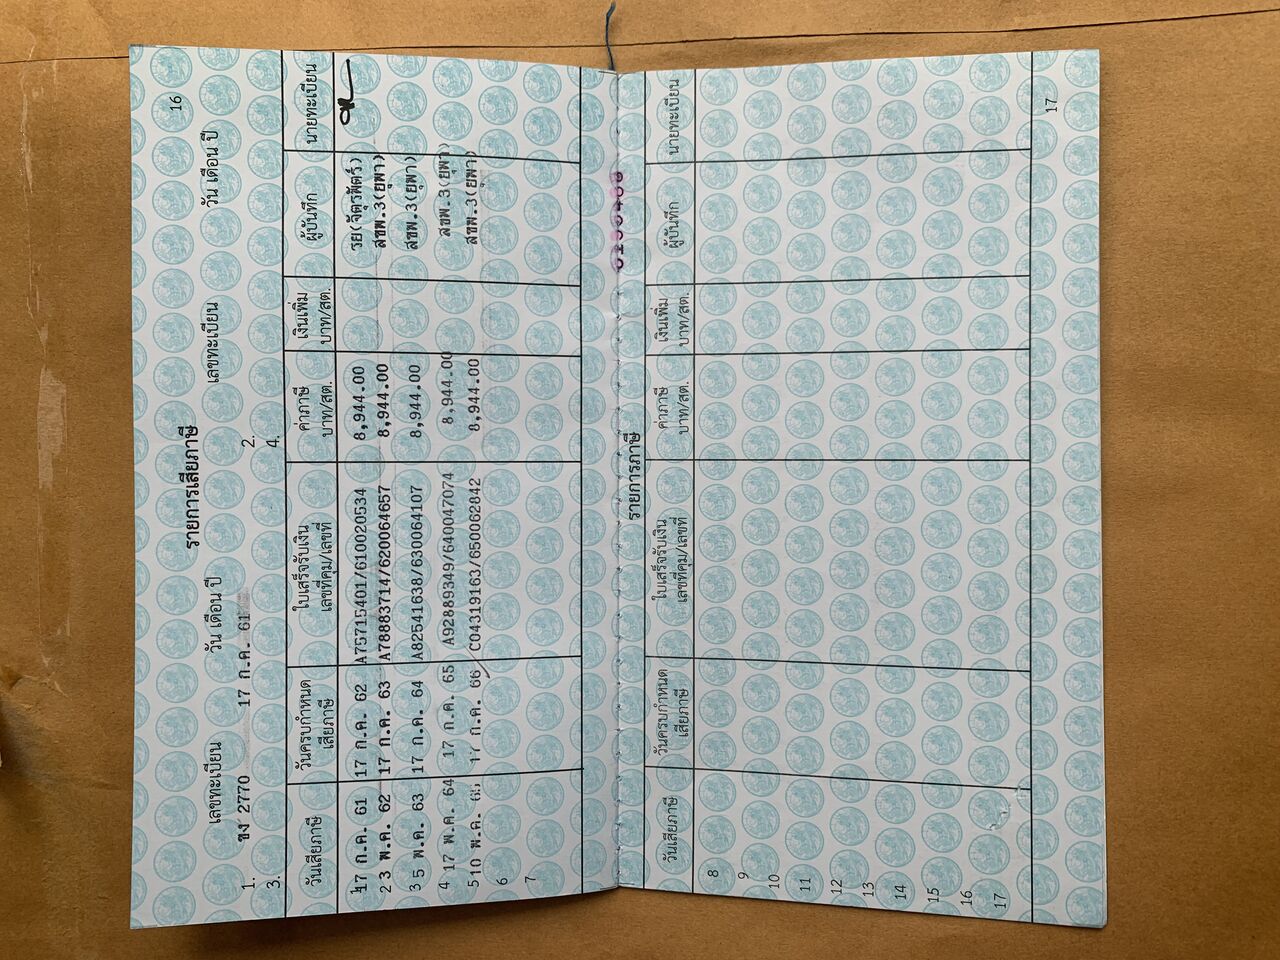 16
รายการเสียภาษี
เลขทะเบียน วัน เดือน ปี เลขทะเบียน วัน เดือน ปี
1. ขง 2770 17 ก.ค. 61 2.
3. 4.
วันเสียภาษี วันครบกำหนดเสียภาษี ใบเสร็จรับเงินเลขที่คุม/เลขที่ ค่าภาษีบาท/สต. เงินเพิ่มบาท/สต. ผู้บันทึก นายทะเบียน
17 ก.ค. 61 17 ก.ค. 62 A75715401/610020534 8,944.00 รย(จัตุรพัตร์)
2 3 พ.ค. 62 17 ก.ค. 63 A78883714/620064657 8,944.00 สขพ.3(ยุพา)
3 5 พ.ค. 63 17 ก.ค. 64 A82541638/630064107 8,944.00 สขพ.3(ยุพา)
4 17 พ.ค. 64 17 ก.ค. 65 A92889349/640047074 8,944.00 สขพ.3(ยุพา)
5 10 พ.ค. 65 17 ก.ค. 66 C04319163/650062842 8,944.00 สขพ.3(ยุพา)
6
7
รายการภาษี
วันเสียภาษี วันครบกำหนดเสียภาษี ใบเสร็จรับเงินเลขที่คุม/เลขที่ ค่าภาษีบาท/สต. เงินเพิ่มบาท/สต. ผู้บันทึก นายทะเบียน
8
9
10
11
12
13
14
15
16
17
17